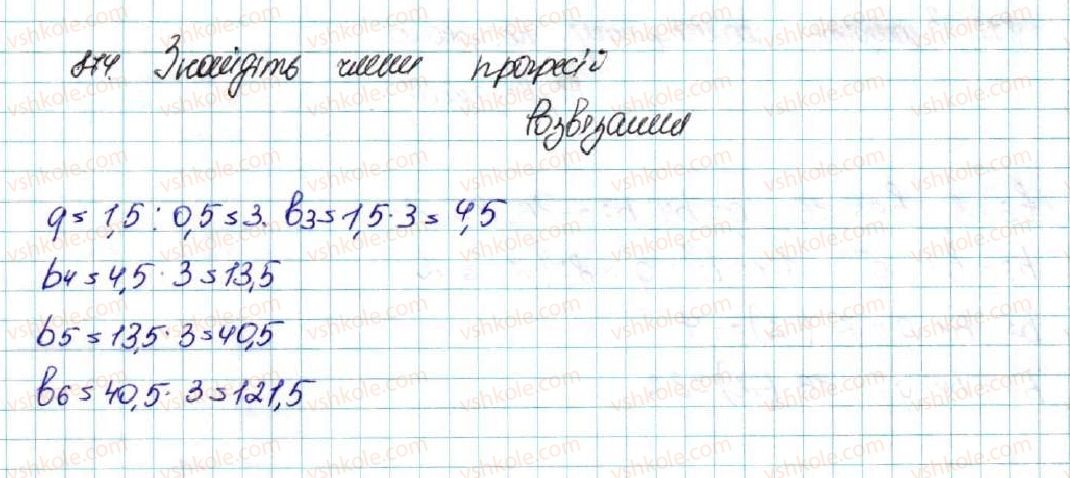 874. Знайдіть члени прогресії
Розв'язання
q = 1,5 : 0,5 = 3. b3 = 1,5 · 3 = 4,5
b4 = 4,5 · 3 = 13,5
b5 = 13,5 · 3 = 40,5
b6 = 40,5 · 3 = 121,5